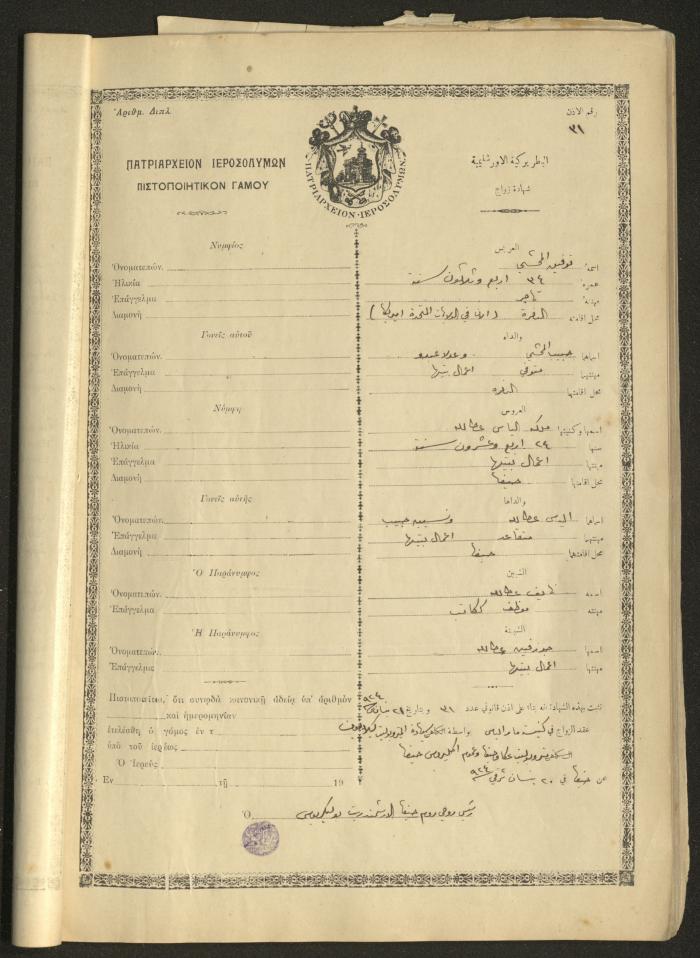 Ἀριθμ. Διπλ.
رقم الاذن
٣١
ΠΑΤΡΙΑΡΧΕΙΟΝ ΙΕΡΟΣΟΛΥΜΩΝ
ΠΙΣΤΟΠΟΙΗΤΙΚΟΝ ΓΑΜΟΥ
ΠΑΤΡΙΑΡΧΕΙΟΝ·ΙΕΡΟΣΟΛΥΜΩΝ
البطريركية الاورشليمية
شهادة زواج
Νυμφίος
Ὀνοματεπών.
Ἡλικία
Ἐπάγγελμα
Διαμονὴ
Γονεῖς αὐτοῦ
Ὀνοματεπών.
Ἐπάγγελμα
Διαμονὴ
Νύμφη
Ὀνοματεπών.
Ἡλικία
Ἐπάγγελμα
Διαμονὴ
Γονεῖς αὐτῆς
Ὀνοματεπών.
Ἐπάγγελμα
Διαμονὴ
Ὁ Παράνυμφος
Ὀνοματεπών.
Ἐπάγγελμα
Ἡ Παράνυμφος
Ὀνοματεπών.
Ἐπάγγελμα
Πιστοποιεῖται, ὅτι συνῳδὰ κανονικῇ ἀδείᾳ ὑπ' ἀριθμὸν
καὶ ἡμερομηνίαν
ἐτελέσθη ὁ γάμος ἐν τ
ὑπὸ τοῦ ἱερέως
Ὁ Ἱερεὺς
Ἐν τῇ 19
Ὁ
العريس
اسمه توفيق
عمره ٣٤ اربع وثلاثون سنة
مهنته تاجر
محل اقامته الناصرة
والداه
اسماهما حبيب
مهنتهما متوفي اعمال بيتها
محل اقامتهما الناصرة
العروس
اسمها وكنيتها ملكه الياس عطالله
سنها ٢٤ اربع وعشرون سنة
مهنتها اعمال بيتها
محل اقامتها حيفا
والداها
اسماهما الياس عطالله حبيب
مهنتهما متقاعد اعمال بيتها
محل اقامتهما حيفا
الشبين
اسمه نايف عطالله
مهنته موظف كاتب
الشبينة
اسمها عطالله
مهنتها اعمال بيتها
نثبت بهذه الشهادة انه بناء على اذن قانوني عدد ٣١ وبتاريخ نيسان ٩٢٤
عقد الزواج في كنيسة مار الياس بواسطة
عكا وحيفا حيفا
عن حيفا في ٢٠ نيسان شرقي ٩٢٤
رئيس روحي روم حيفا الارشمندريت